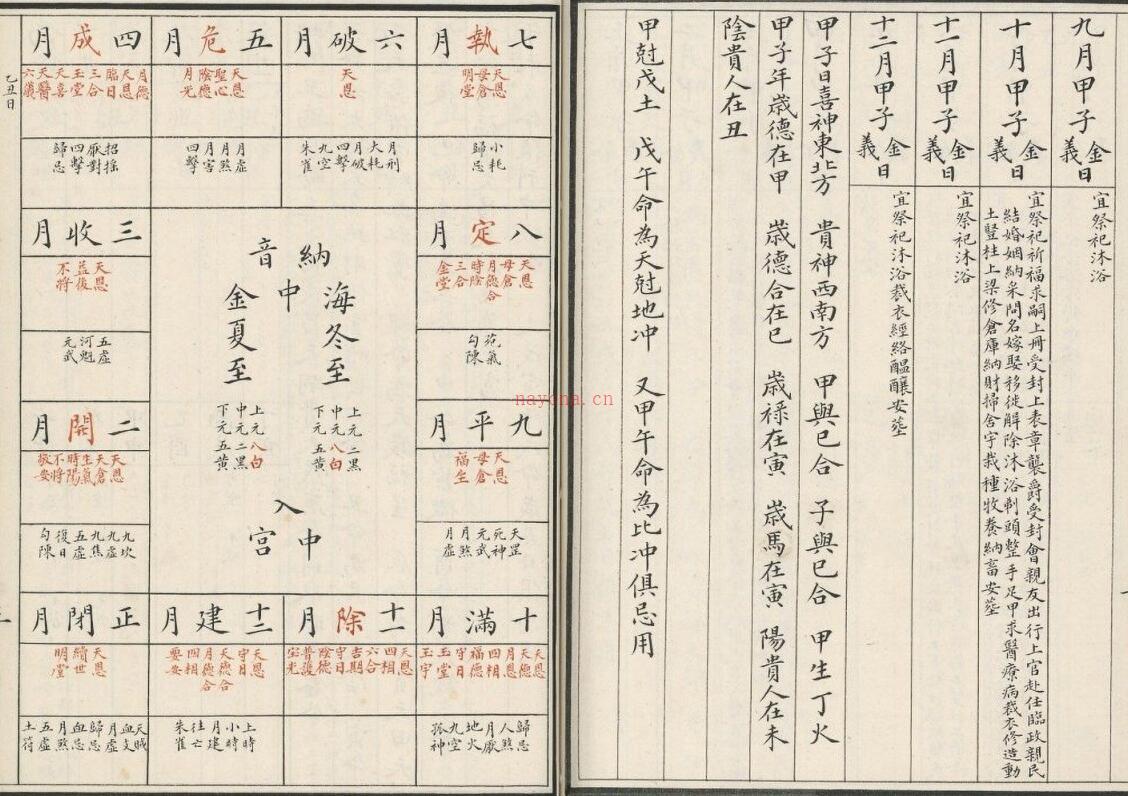 九月甲子
金
義日
宜祭祀沐浴
十月甲子
金
義日
宜祭祀祈福求嗣上冊受封上表章襲爵受封會親友出行上官赴任臨政親民
結婚姻納采問名嫁娶移徙解除沐浴剃頭整手足甲求醫療病裁衣修造動
土豎柱上梁修倉庫納財掃舍宇栽種牧養納畜安塟
十一月甲子
金
義日
宜祭祀沐浴
十二月甲子
金
義日
宜祭祀沐浴裁衣經絡醞釀安塟
甲子日喜神東北方 貴神西南方 甲與巳合 子與巳合 甲生丁火
甲子年歲德在甲 歲德合在巳 歲祿在寅 歲馬在寅 陽貴人在未
陰貴人在丑
甲尅戊土 戊午命為天尅地冲 又甲午命為比冲俱忌用
七執月
天恩
母倉
明堂
小耗
歸忌
六破月
天恩
月刑
大耗
月破
四擊
九空
朱雀
五危月
天恩
聖心
陰德
月光
月虛
月煞
月害
四擊
四成月
月德
天恩
臨日
三合
玉堂
天喜
天醫
六儀
招搖
厭對
四擊
歸忌
乙丑日
八定月
天恩
母倉
月德合
時陰
三合
金堂
氣
勾陳
納音
中
海冬至
金夏至
上元二黑
中元八白
下元五黃
上元八白
中元二黑
下元五黃
入
中宮
三收月
天恩
益後
不將
五虛
河魁
元武
九平月
天恩
母倉
福生
天罡
死神
元武
月煞
月虛
二開月
天恩
天倉
生氣
時陽
不將
敬安
九坎
九虛
九焦
五虛
復日
勾陳
十滿月
天恩
天德
月恩
四相
福德
守日
玉堂
玉宇
歸忌
人煞
月厭
地火
九空
孤神
十一除月
天恩
四相
六合
吉期
守日
陰德
普護
宝光
十二建月
天恩
守日
天德合
月德合
四相
要安
上時
小時
月建
往亡
朱雀
正閉月
天恩
續世
明堂
天賊
血支
月虛
歸忌
血忌
月煞
五虛
土符
nayona.cn